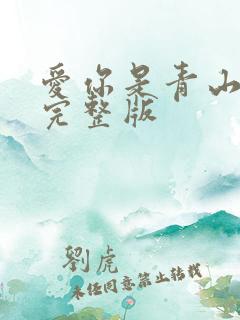 愛你是青山
完整版
劉虎
未经同意禁止转载